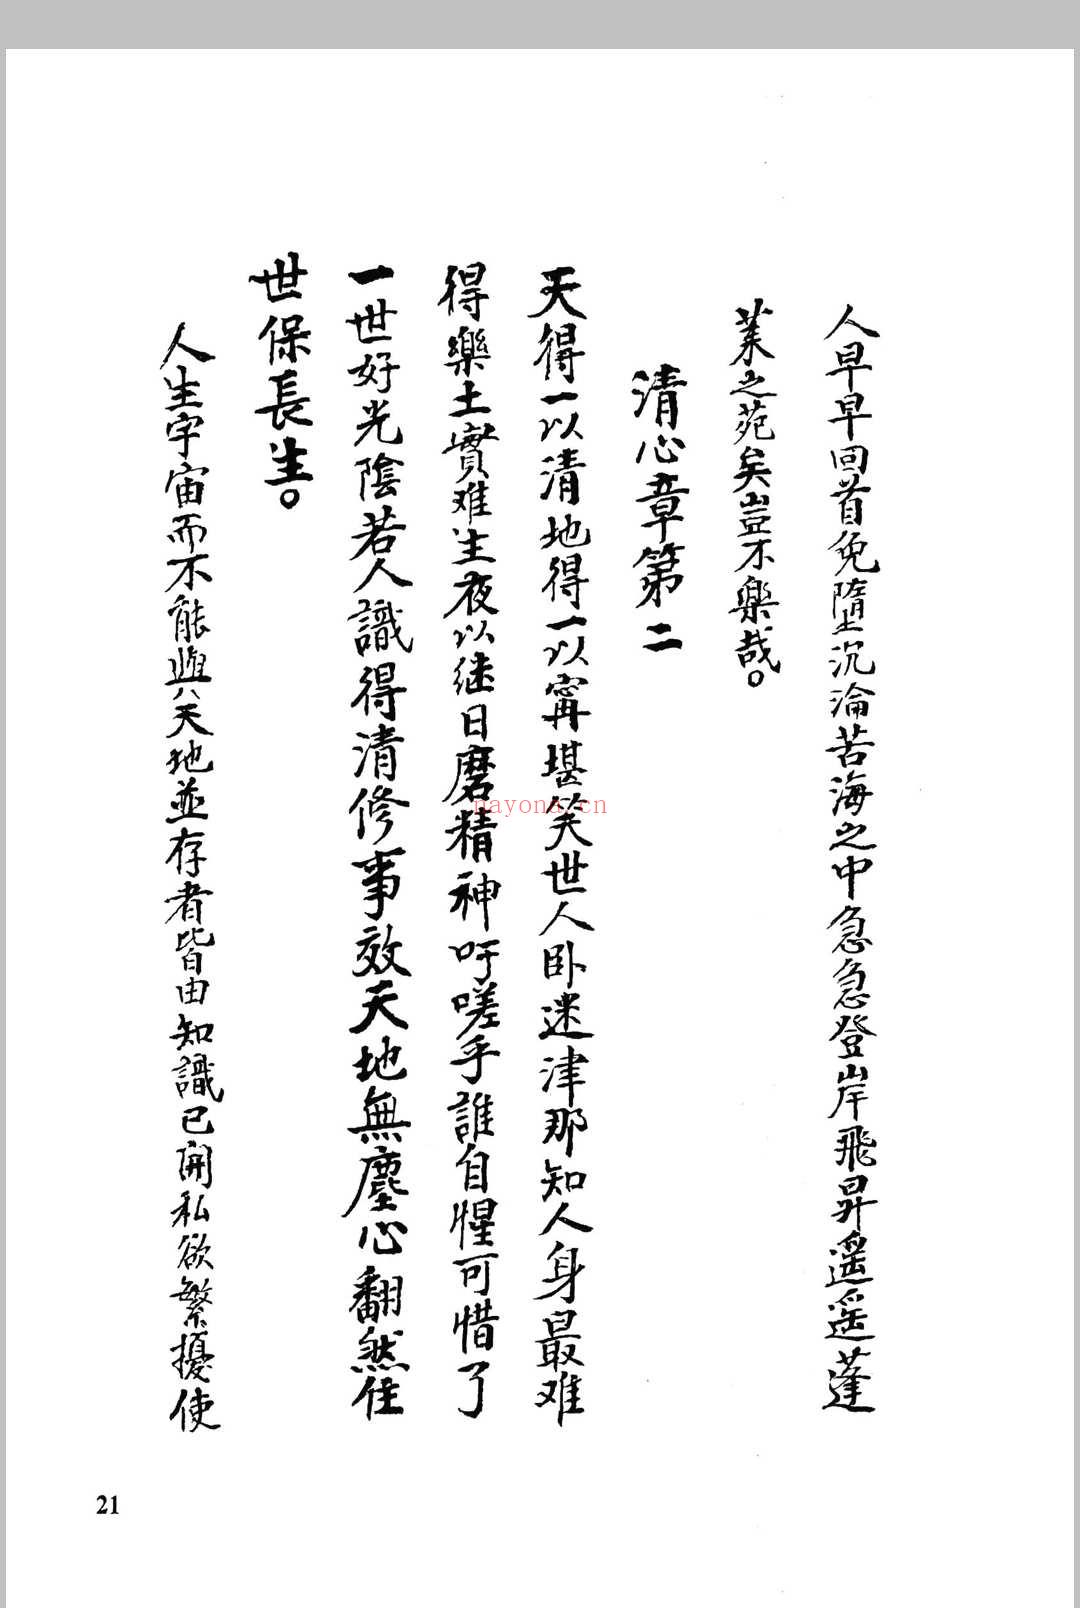 人早早回首免墮沉淪苦海之中急急登岸飛昇遥遥蓬
莱之苑矣豈不樂哉。
清心章第二
天得一以清地得一以寧堪笑世人卧迷津那知人身最难
得樂土實难生夜以继日磨精神吁嗟乎誰自惺可惜了
一世好光陰若人識得清修事效天地無塵心翻然住
世保長生。
人生宇宙而不能與天地並存者皆由知識已開私欲繁擾使
nayona.cn
21